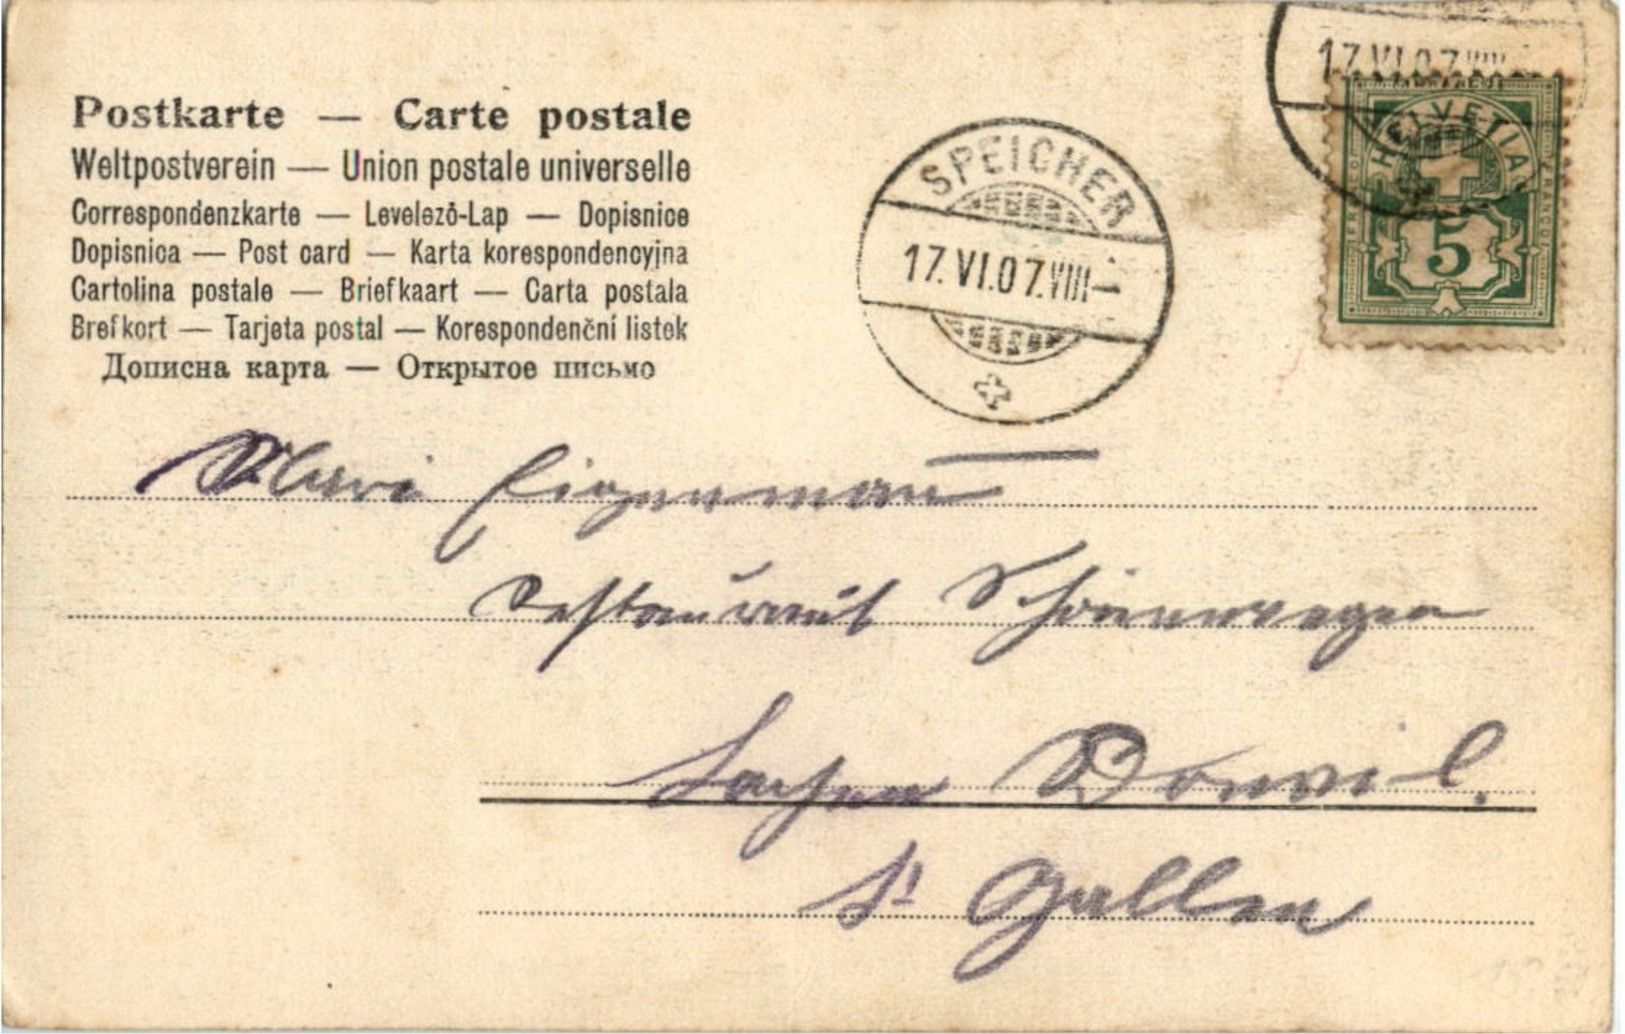 Postkarte — Carte postale
Weltpostverein — Union postale universelle
Correspondenzkarte — Levelező-Lap — Dopisnice
Dopisnica — Post card — Karta korespondencyjna
Cartolina postale — Briefkaart — Carta postala
Brefkort — Tarjeta postal — Korespondenční listek
Дописна карта — Открытое письмо
SPEICHER
17.VI.07.VIII—
17.VI.07.VIII
HELVETIA
FRANCO
5
Eigenmann
Restaurant Schönenwegen
Lachen Vonwil.
St Gallen